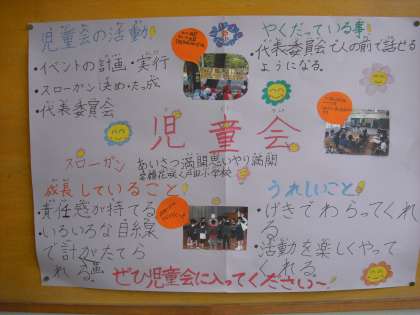 児童会の活動
・イベントの計画・実行
・スローガン決め・たっ成
・代表委員会
やくだっている事
・代表委員会で人の前で話せる
ようになる。
児童会
スローガン あいさつ満開思いやり満開
笑顔花咲く戸田小学校
成長していること
・責任感が持てる
・いろいろな目線
で計がたてら
れる。画
うれしいこと
・げきでわらってくれ
る
・活動を楽しくやって
くれる。
ぜひ児童会に入ってください～!